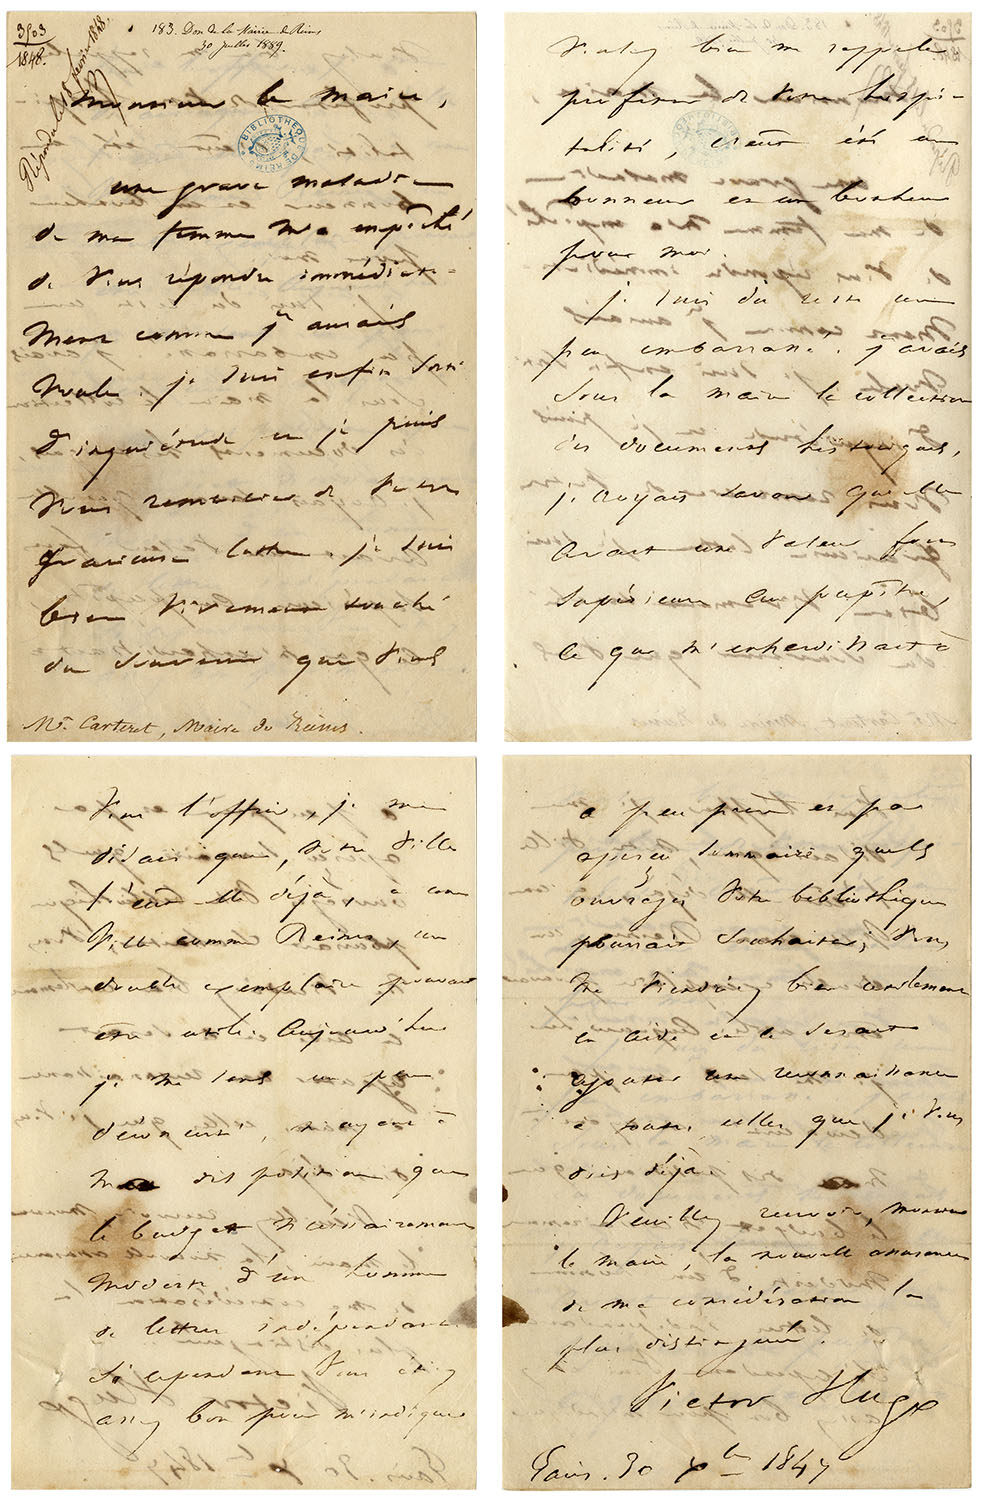 3503
1848.
Répondu le 15 février 1848.
183. Don de la Mairie de Reims
30 juillet 1889.
BIBLIOTHEQUE DE REIMS
Monsieur le maire,
une grave maladie
de ma femme m'a empêché
de vous répondre immédiate-
ment comme j'aurais
voulu. je suis enfin sorti
d'inquiétude et je puis
vous remercier de votre
gracieuse lettre. je suis
bien vivement touché
du souvenir que vous
Mr. Carteret, Maire de Reims.
voulez bien me rappeler
profiter de votre hospi-
talité, c'eût été un
honneur et un bonheur
pour moi.
je suis du reste un
peu embarrassé. j'avais
sous la main la collection
des documents historiques,
je croyais savoir qu'elle
avait une valeur fort
supérieure au pupitre,
ce qui m'enhardissait à
vous l'offrir, je me
disais que, votre ville
l'eût-elle déjà, à une
ville comme Reims, un
double exemplaire pouvait
être utile. Aujourd'hui
je me sens un peu
déconcerté, n'ayant à
ma disposition que
le budget nécessairement
modeste d'un homme
de lettres indépendant.
Si cependant vous étiez
assez bon pour m'indiquer
à peu près et par
aperçu sommaire quels
ouvrages votre bibliothèque
pourrait souhaiter, vous
me viendriez bien cordialement
en aide et ce serait
ajouter une reconnaissance
à toutes celles que je vous
dois déjà.
Veuillez recevoir, monsieur
le maire, la nouvelle assurance
de ma considération la
plus distinguée.
Victor Hugo
Paris. 30 Xbre 1847